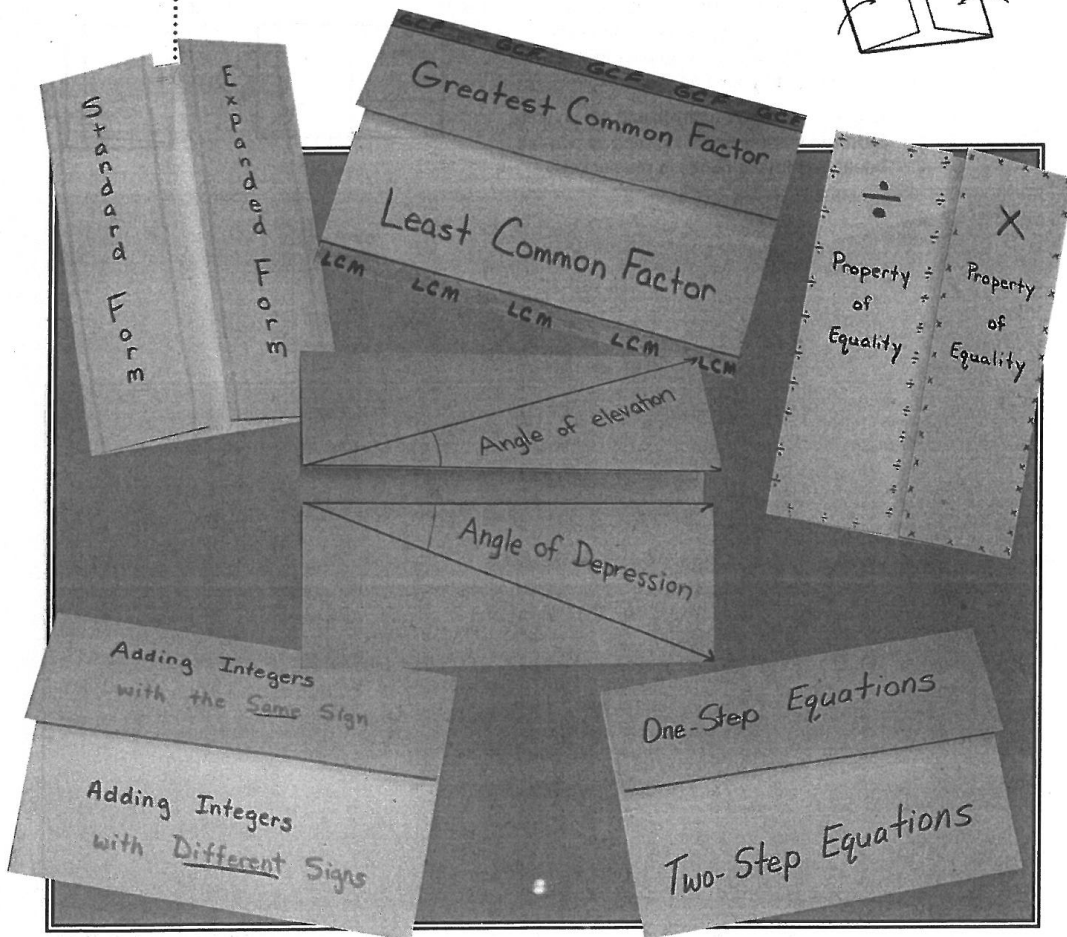 Standard Form
Expanded Form
GCF GCF GCF GCF GCF
Greatest Common Factor
Least Common Factor
LCM LCM LCM LCM LCM
÷
Property
of
Equality
X
Property
of
Equality
Angle of elevation
Angle of Depression
Adding Integers
with the Same Sign
Adding Integers
with Different Signs
One-Step Equations
Two-Step Equations